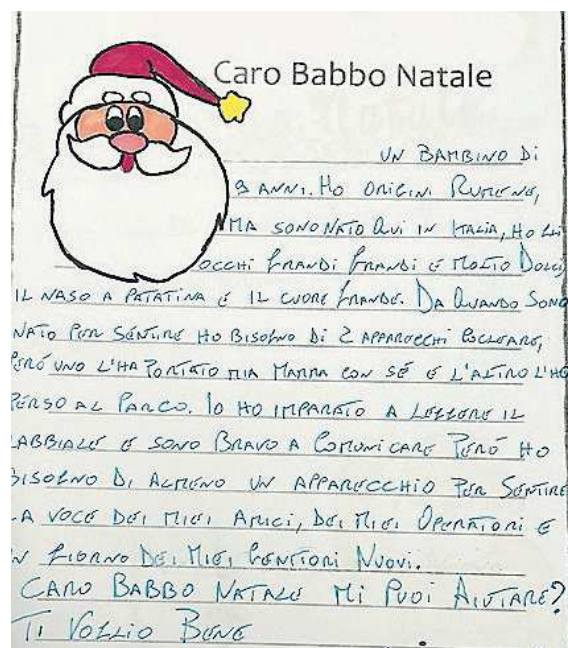 Caro Babbo Natale
UN BAMBINO DI
9 ANNI. HO ORIGINI RUMENE,
MA SONO NATO QUI IN ITALIA, HO GLI
OCCHI GRANDI GRANDI E MOLTO DOLCI,
IL NASO A PATATINA E IL CUORE GRANDE. DA QUANDO SONO
NATO PER SENTIRE HO BISOGNO DI 2 APPARECCHI COCLEARE,
PERÓ UNO L'HA PORTATO MIA MAMMA CON SÉ E L'ALTRO L'HO
PERSO AL PARCO. IO HO IMPARATO A LEGGERE IL
LABBIALE E SONO BRAVO A COMUNICARE PERÓ HO
BISOGNO DI ALMENO UN APPARECCHIO PER SENTIRE
LA VOCE DEI MIEI AMICI, DEI MIEI OPERATORI E
UN GIORNO DEI MIEI GENITORI NUOVI.
CARO BABBO NATALE MI PUOI AIUTARE?
TI VOGLIO BENE